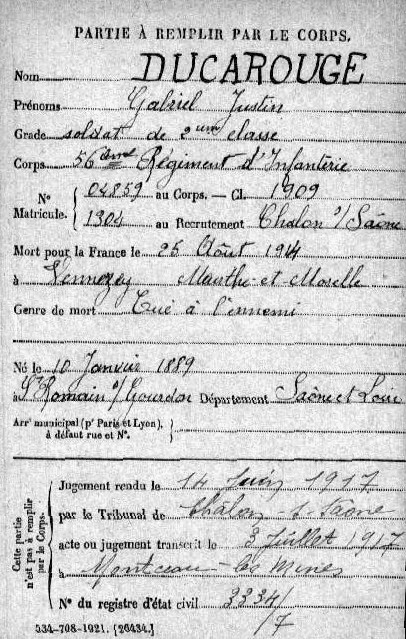 PARTIE À REMPLIR PAR LE CORPS.
Nom DUCAROUGE
Prénoms Gabriel Justin
Grade soldat de 2ème classe
Corps 56ème Régiment d'Infanterie
N° Matricule. { 04859 au Corps. — Cl. 1909
1304 au Recrutement Chalon s/ Saône
Mort pour la France le 25 Août 1914
à Vennezey Meurthe-et-Moselle
Genre de mort Tué à l'ennemi
Né le 10 Janvier 1889
à St Romain s/ Gourdon Département Saône et Loire
Arrt municipal (pr Paris et Lyon), à défaut rue et N°. {
Cette partie n'est pas à remplir par le Corps.
Jugement rendu le 14 Juin 1917
par le Tribunal de Chalon-s-Saône
acte ou jugement transcrit le 3 Juillet 1917
à Montceau-les-Mines
N° du registre d'état civil 3334/7
534-708-1921. [26434.]